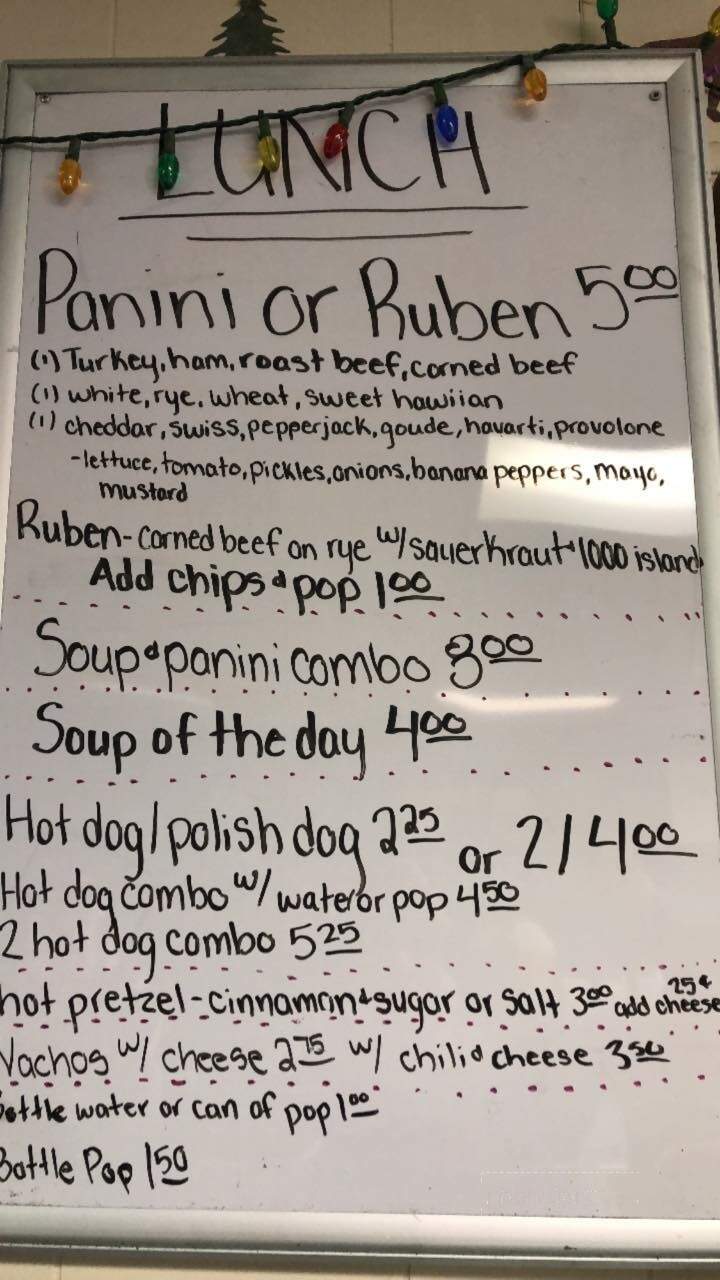 LUNCH
Panini or Ruben 5.00
(1) Turkey, ham, roast beef, corned beef
(1) white, rye, wheat, sweet hawiian
(1) cheddar, swiss, pepperjack, goude, havarti, provolone
-lettuce, tomato, pickles, onions, banana peppers, mayo,
mustard
Ruben-corned beef on rye w/sauerkraut & 1000 island
Add chips & pop 1.00
Soup & panini combo 8.00
Soup of the day 4.00
Hot dog/polish dog 2.25 or 2/4.00
Hot dog combo w/ water or pop 4.50
2 hot dog combo 5.25
hot pretzel-cinnamon & sugar or salt 3.00 add cheese 25¢
Nachos w/ cheese 2.75 w/ chili & cheese 3.50
Bottle water or can of pop 1.00
Bottle Pop 1.50